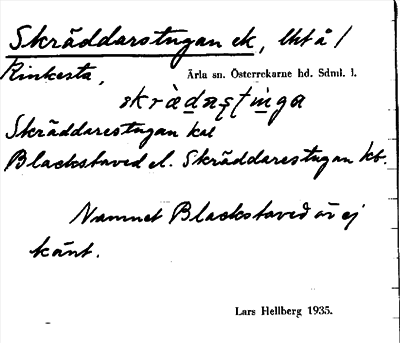 Skräddarstugan ek, lht å /
Rinkesta, Ärla sn. Österrekarne hd. Sdml. l.
skrädastinga
Skräddarestugan kal
Blackstaved el. Skräddarestugan kb.
Namnet Blackstaved är ej
känt.
Lars Hellberg 1935.